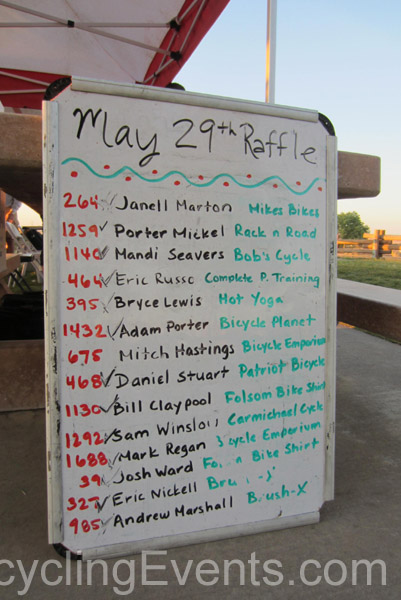 May 29th Raffle
264 ✓ Janell Marton Mikes Bikes
1259 ✓ Porter Mickel Rack n Road
1140 ✓ Mandi Seavers Bob's Cycle
464 ✓ Eric Russo Complete P. Training
395 ✓ Bryce Lewis Hot Yoga
1432 ✓ Adam Porter Bicycle Planet
675 Mitch Hastings Bicycle Emporium
468 ✓ Daniel Stuart Patriot Bicycle
1130 ✓ Bill Claypool Folsom Bike Shirt
1292 ✓ Sam Winslow Carmichael Cycle
1688 ✓ Mark Regan Emporium
39 ✓ Josh Ward Bike Shirt
327 ✓ Eric Nickell
985 ✓ Andrew Marshall
cyclingEvents.com